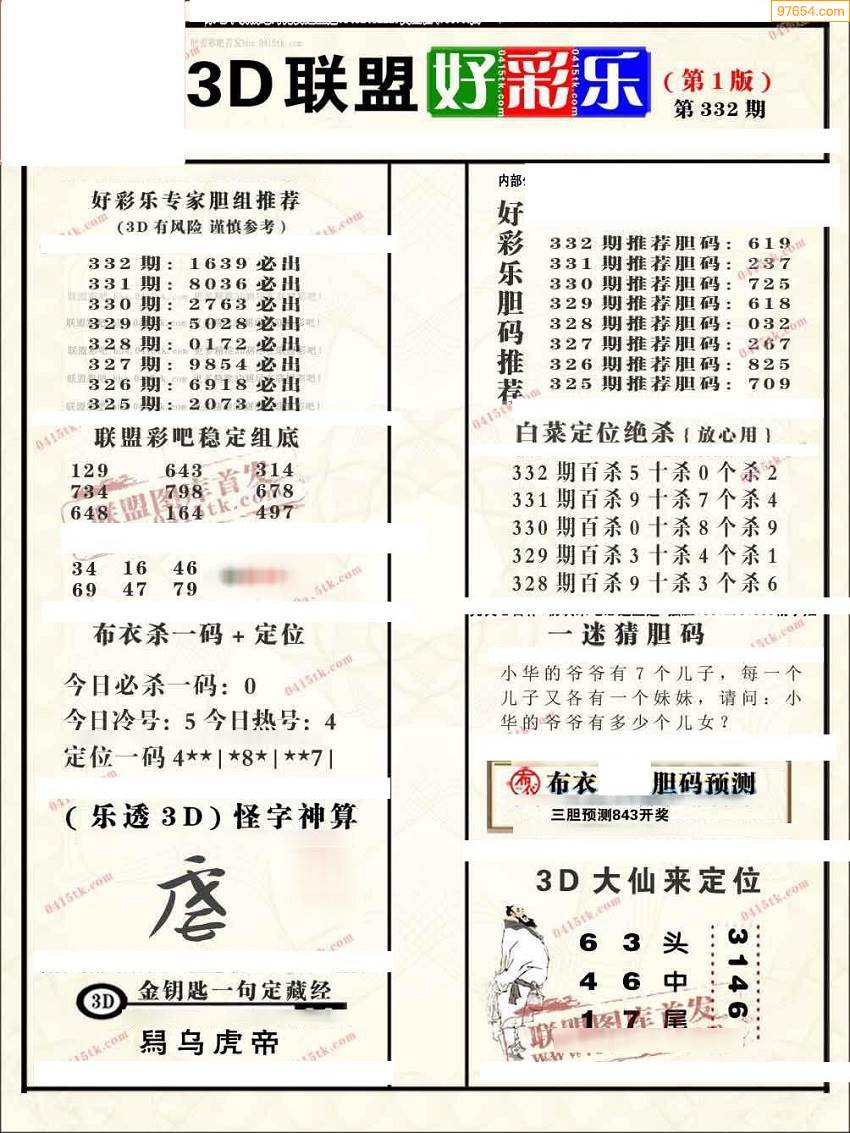 97654.com
3D联盟好彩乐
(第1版)
第332期
好彩乐专家胆组推荐
(3D有风险 谨慎参考)
332期：1639必出
331期：8036必出
330期：2763必出
329期：5028必出
328期：0172必出
327期：9854必出
326期：6918必出
325期：2073必出
联盟彩吧稳定组底
129 643 314
734 798 678
648 164 497
34 16 46
69 47 79
布衣杀一码+定位
今日必杀一码：0
今日冷号：5 今日热号：4
定位一码4**|*8*|**7|
(乐透3D)怪字神算
3D
金钥匙一句定藏经
乌虎帝
好彩乐胆码推荐
332期推荐胆码：619
331期推荐胆码：237
330期推荐胆码：725
329期推荐胆码：618
328期推荐胆码：032
327期推荐胆码：267
326期推荐胆码：825
325期推荐胆码：709
白菜定位绝杀{放心用}
332期百杀5十杀0个杀2
331期百杀9十杀7个杀4
330期百杀0十杀8个杀9
329期百杀3十杀4个杀1
328期百杀9十杀3个杀6
一迷猜胆码
小华的爷爷有7个儿子，每一个
儿子又各有一个妹妹，请问：小
华的爷爷有多少个儿女？
布衣 胆码预测
三胆预测843开奖
3D大仙来定位
6 3 头
4 6 中
1 7 尾
3146
联盟图库首发
0415tk.com